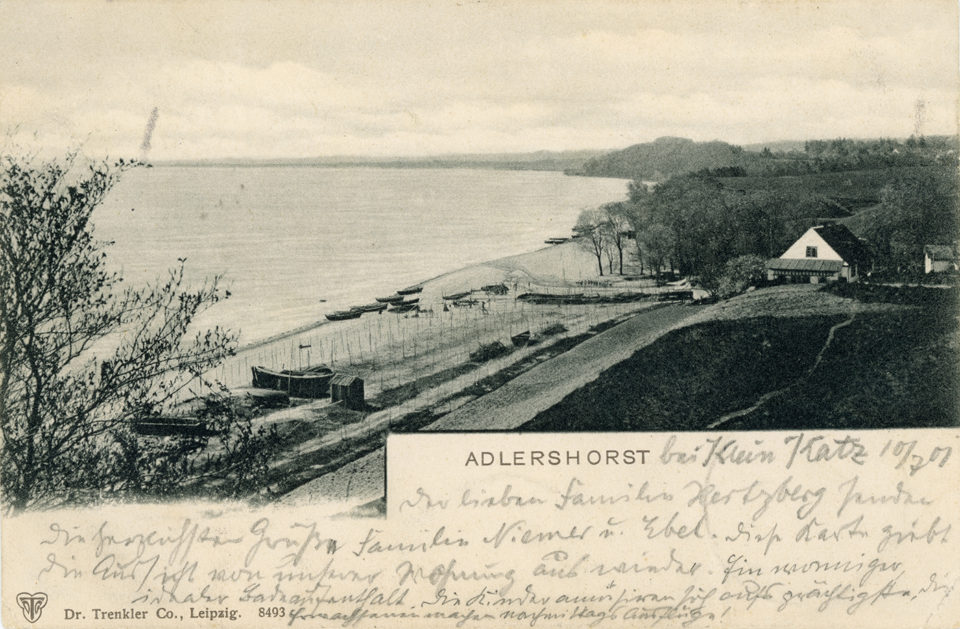 ADLERSHORST bei Klein Katz 10/7 01
Der lieben Familie Hertzberg senden
die herzlichsten Grüße Familie Niemer u. Ebel. Diese Karte giebt
die Aussicht von unserer Wohnung aus wieder. Ein wonniger
idealer Badeaufenthalt. Die Kinder amüsiren sich aufs prächtigste, die
Erwachsenen machen nachmittags Ausflüge.
Dr. Trenkler Co., Leipzig. 8493